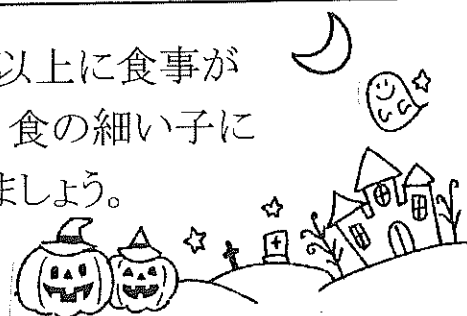 以上に食事が
食の細い子に
ましょう。